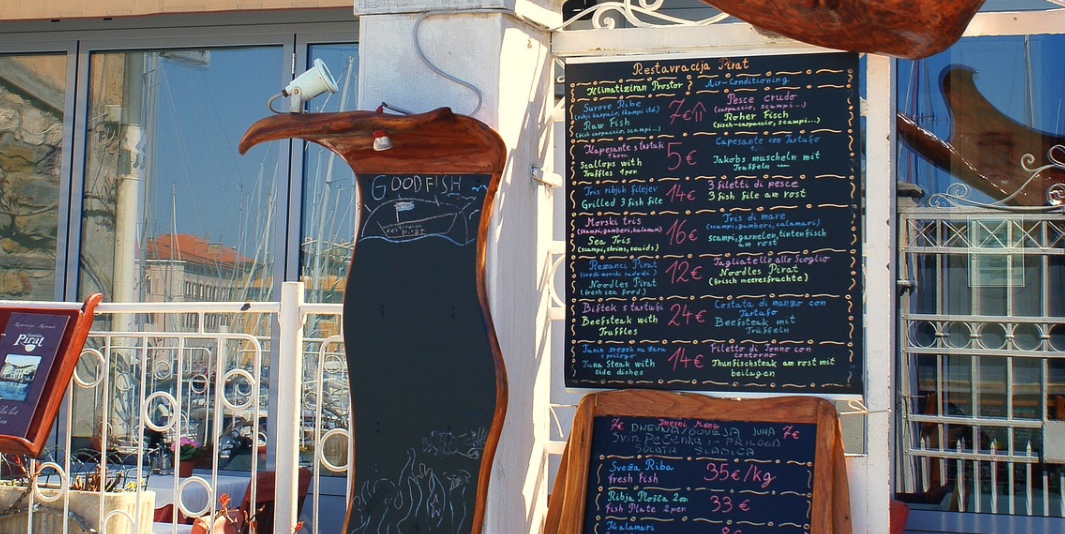 GOODFISH
Restavracija Pirat
Klimatiziran Prostor
Air-Conditioning
Surove Ribe
Raw Fish
7€
Pesce crudo
(carpaccio, scampi...)
Roher Fisch
(fisch-carpaccio, scampi...)
Kapesante s tartufi
Scallops with
Truffles 1per
5€
Capesante con Tartufo
Jakobs muscheln mit
Trüffeln
Tris ribjih filejev
Grilled 3 fish file
14€
3 filetti di pesce
3 fish file am rost
Morski tris
(scampi,gamberi,kalamari)
Sea Tris
(scampi,shrims,squids)
16€
Tris di mare
(scampi,gamberi,calamari)
scampi,garnelen,tintenfisch
am rost
Rezanci Pirat
Noodles Pirat
(fresh sea food)
12€
Tagliatelle allo Scoglio
Noodles Pirat
(frisch meeresfruchte)
Biftek s tartufi
Beefsteak with
Truffles
24€
Costata di manzo con
Tartufo
Beefsteak mit
Trüffeln
Tuna zrezek na žaru
s prilogo
Tuna Steak with
side dishes
14€
Filetto di Tonno con
contorno
Thunfischsteak am rost mit
beilagen
Pirat
7€ Dnevni Menu 7€
DNEVNA/GOVEJA JUHA
SVIN. PEČENKA + PRILOGA
SOLATA SLADICA
Sveža Riba
Fresh Fish
35€/kg
Ribja Plošča 2os
Fish Plate 2per
33€
Kalamari